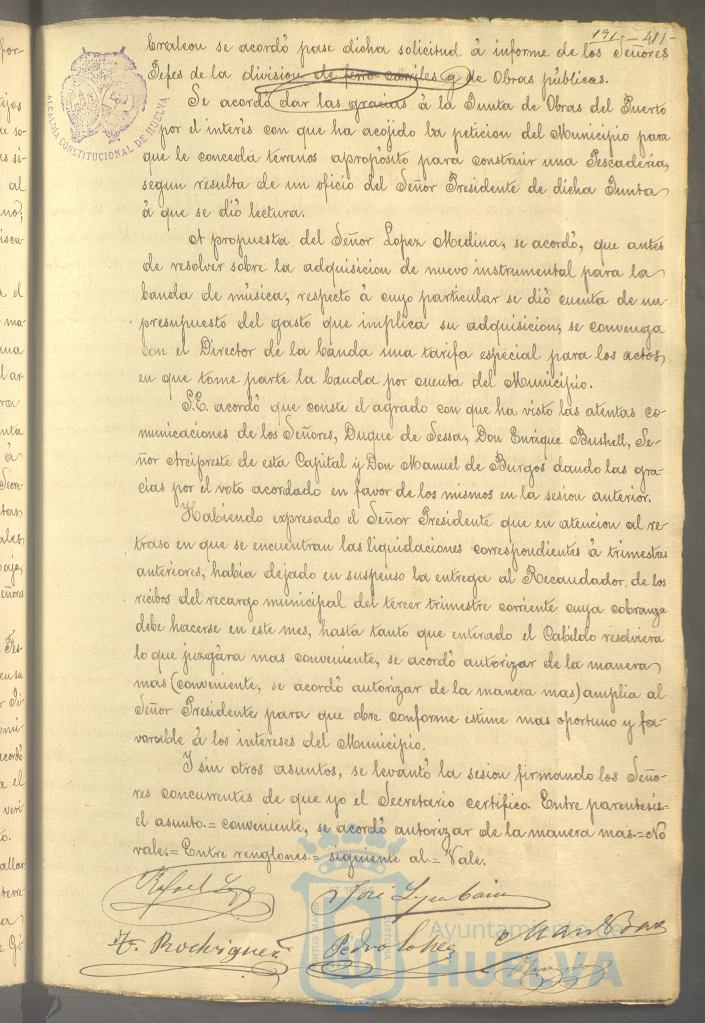 191 - 411 -
se acordó pase dicha solicitud á informe de los Señores
Jefes de la division de ferro-carriles y de Obras públicas.
Se acordó dar las gracias á la Junta de Obras del Puerto
por el interés con que ha acojido la peticion del Municipio para
que le conceda terrenos apropósito para construir una Pescadería,
segun resulta de un oficio del Señor Presidente de dicha Junta
á que se dió lectura.
A propuesta del Señor Lopez Medina, se acordó, que antes
de resolver sobre la adquisicion de nuevo instrumental para la
banda de música, respecto á cuyo particular se dió cuenta de un
presupuesto del gasto que implica su adquisicion, se convenga
con el Director de la banda una tarifa especial para los actos,
en que tome parte la banda por cuenta del Municipio.
S.E. acordó que conste el agrado con que ha visto las atentas co-
municaciones de los Señores, Duque de Sessa, Don Enrique Bushell, Se-
ñor Arcipreste de esta Capital y Don Manuel de Burgos dando las gra-
cias por el voto acordado en favor de los mismos en la sesion anterior.
Habiendo expresado el Señor Presidente que en atencion al re-
traso en que se encuentran las liquidaciones correspondientes á trimestres
anteriores, habia dejado en suspenso la entrega al Recaudador de los
recibos del recargo municipal del tercer trimestre corriente cuya cobranza
debe hacerse en este mes, hasta tanto que enterado el Cabildo resolviera
lo que juzgára mas conveniente, se acordó autorizar de la manera
mas (conveniente, se acordó autorizar de la manera mas) amplia al
Señor Presidente para que obre conforme estime mas oportuno y fa-
vorable á los intereses del Municipio.
I sin otros asuntos, se levantó la sesion firmando los Seño-
res concurrentes de que yo el Secretario certifico. Entre parentesis=
el asunto.= conveniente, se acordó autorizar de la manera mas.=No
vale.= Entre renglones.= siguiente al.= Vale.
Rafael Lopez José
F. Rodriguez Pedro Lopez
ALCALDIA CONSTITUCIONAL DE HUELVA.
Ayuntamiento de
HUELVA